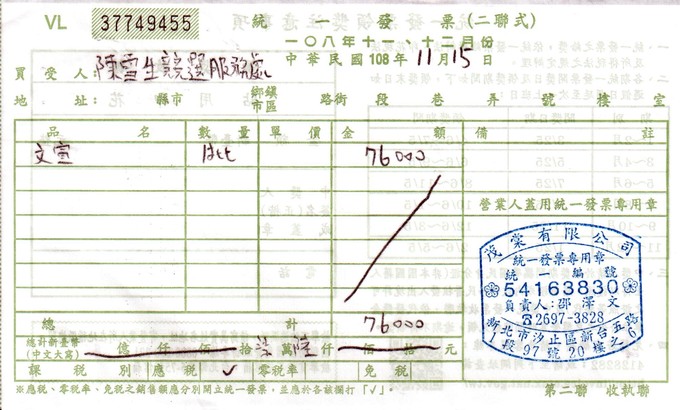 VL 37749455 統一發票(二聯式)
一〇八年十一、十二月份
買受人：陳雪生競選服務處 中華民國108年11月15日
地址： 縣市 鄉鎮市區 路街 段 巷 弄 號 樓 室
品名 數量 單價 金額 備註
文宣 1批 76000
營業人蓋用統一發票專用章
茂棠有限公司
統一發票專用章
統一編號
54163830
負責人：邵澤文
☎2697-3828
新北市汐止區新台五路
1段97號20樓之6
總計 76000
總計新臺幣(中文大寫) 億 仟 佰 拾 柒 萬 陸 仟 佰 拾 元
課稅別 應稅 ✓ 零稅率 免稅
※應稅、零稅率、免稅之銷售額應分別開立統一發票，並應於各該欄打「✓」。
第二聯 收執聯